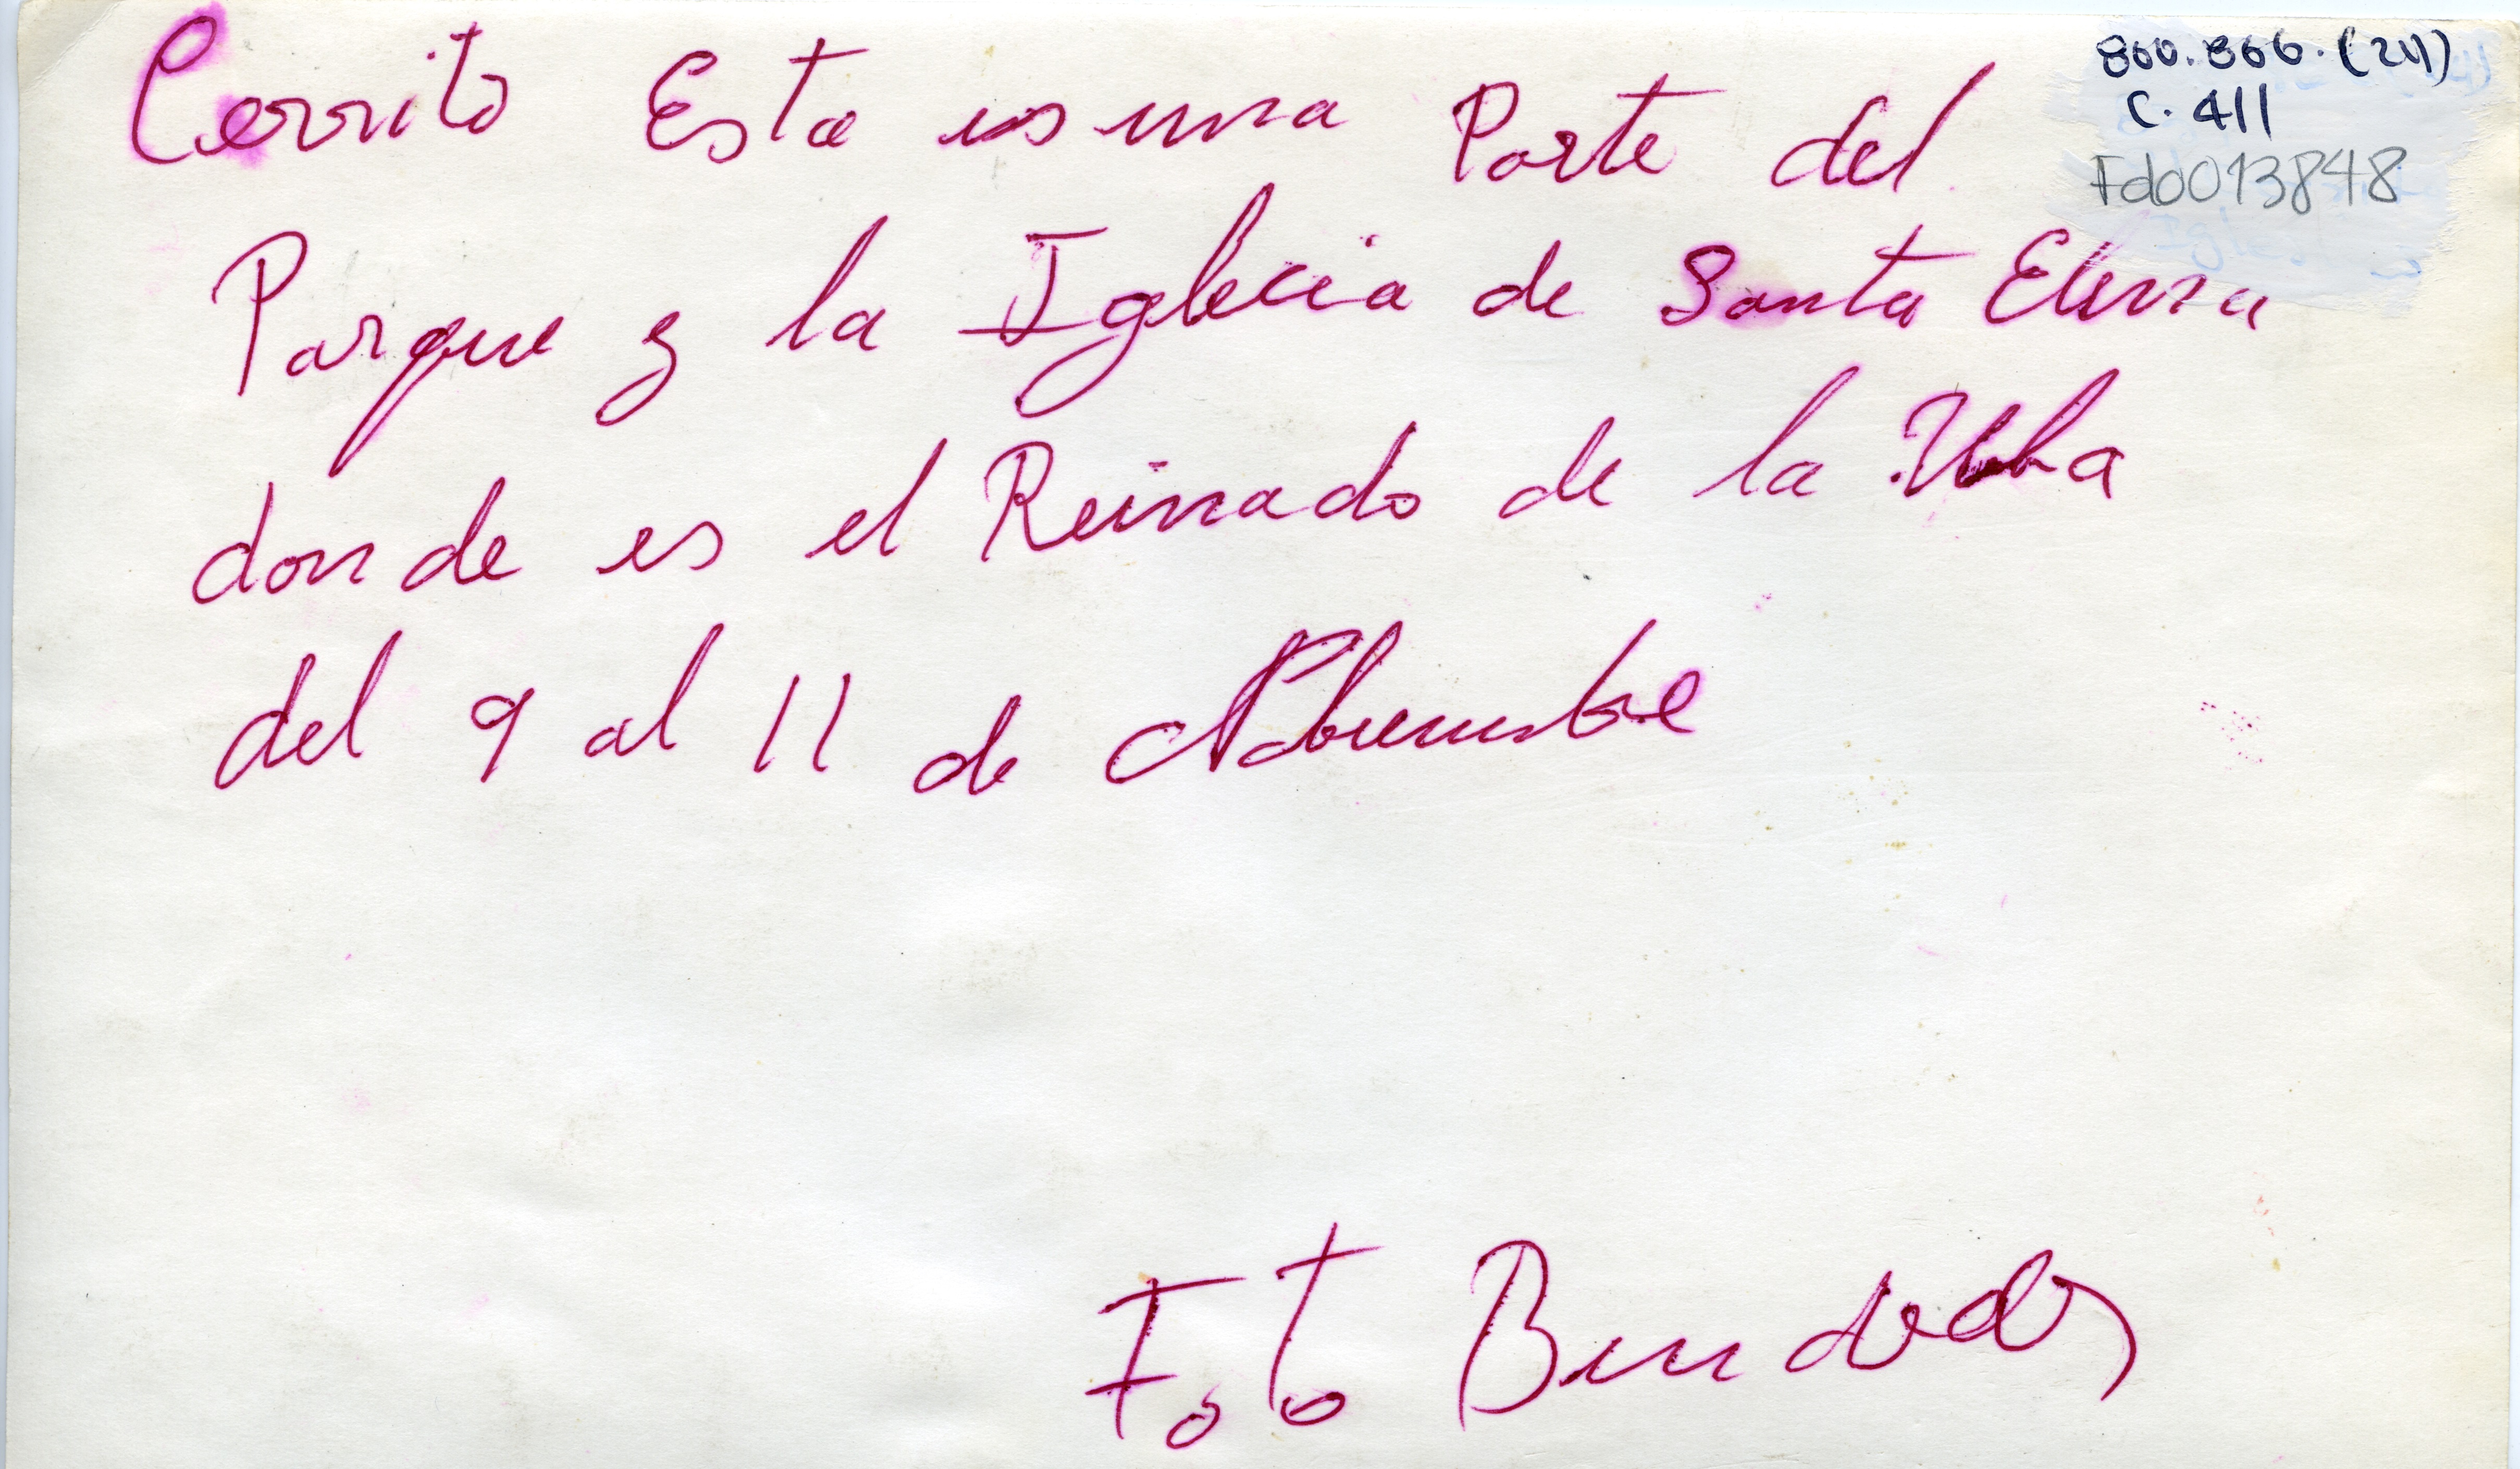 860.866.(211)
C. 411
Fdo013848
Cerrito Esta es una Parte del
Parque y la Iglecia de Santa Elena
donde es el Reinado de la Uba
del 9 al 11 de Nobiembre
Foto